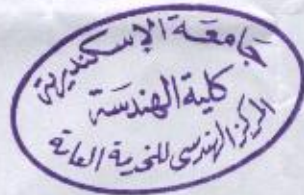 جامعة الإسكندرية
كلية الهندسة
المركز الهندسى للخدمة العامة